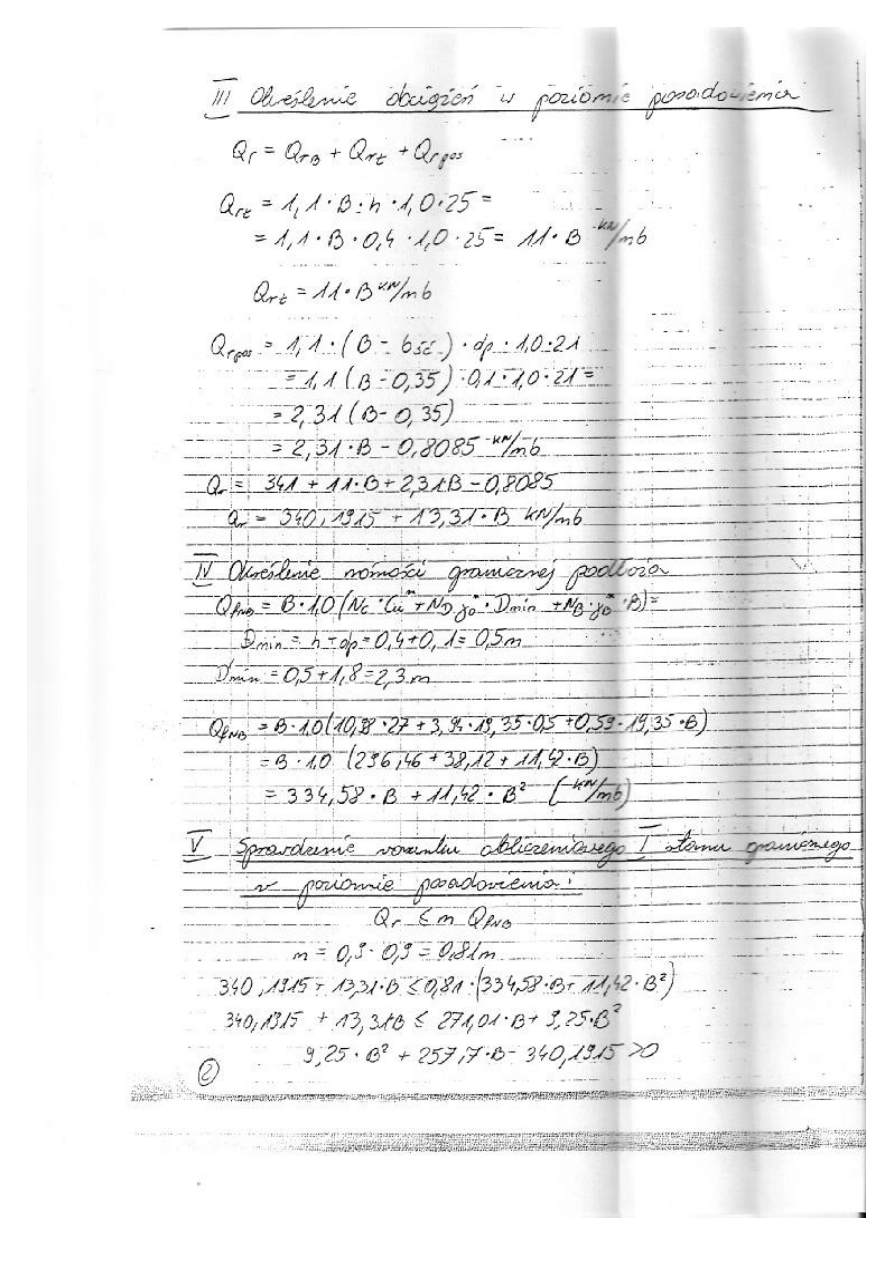 III Określenie obciążeń w poziomie posadowienia
Qr = QrB + Qrt + Qrpos
Qrt = 1,1 · B · h · 1,0 · 25 =
= 1,1 · B · 0,4 · 1,0 · 25 = 11 · B kN/mb
Qrt = 11 · B kN/mb
Qrpos = 1,1 · (B - bść) · dp · 1,0 · 21
= 1,1 (B - 0,35) · 0,1 · 1,0 · 21 =
= 2,31 (B - 0,35)
= 2,31 · B - 0,8085 kN/mb
Qr = 341 + 11 · B + 2,31B - 0,8085
Qr = 340,1915 + 13,31 · B kN/mb
IV Określenie nośności granicznej podłoża
QfNB = B · 1,0 (Nc · Cu* + ND γo* · Dmin + NB · γo* · B) =
Dmin = h + dp = 0,4 + 0,1 = 0,5 m
D'min = 0,5 + 1,8 = 2,3 m
QfNB = B · 1,0 (10,98 · 27 + 3,94 · 19,35 · 0,5 + 0,59 · 19,35 · B)
= B · 1,0 (296,46 + 38,12 + 11,42 · B)
= 334,58 · B + 11,42 · B² (kN/mb)
V Sprawdzenie warunku obliczeniowego I stanu granicznego
w poziomie posadowienia:
Qr ≤ m QfNB
m = 0,9 · 0,9 = 0,81m
340,1915 + 13,31 · B ≤ 0,81 · (334,58 · B + 11,42 · B²)
340,1915 + 13,31B ≤ 271,01 · B + 9,25 · B²
9,25 · B² + 257,7 · B - 340,1915 > 0
2